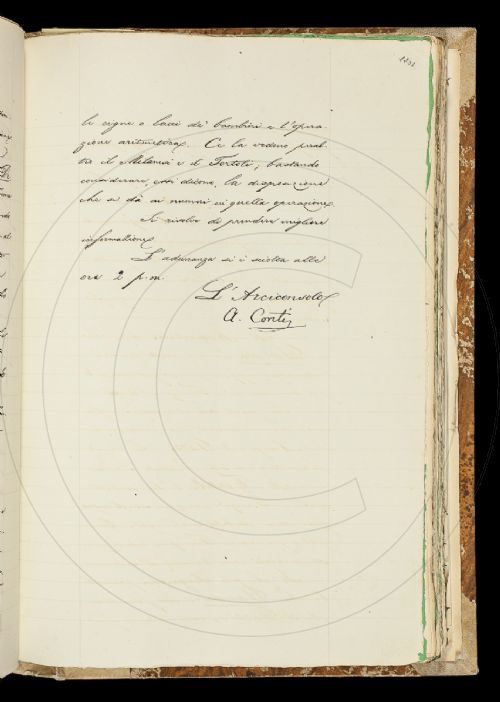 le cigne o lacci dè bambini e l'opera-
zione aritmetica. Ce la vedono piut-
tosto il Milanesi e il Tortoli, bastando
considerare, essi dicono, la disposizione
che si dà ai numeri in quella operazione.
Si risolve di prendere migliori
informazioni.
L'adunanza si è sciolta alle
ore 2 p.m.
L'Arciconsolo
A. Conti